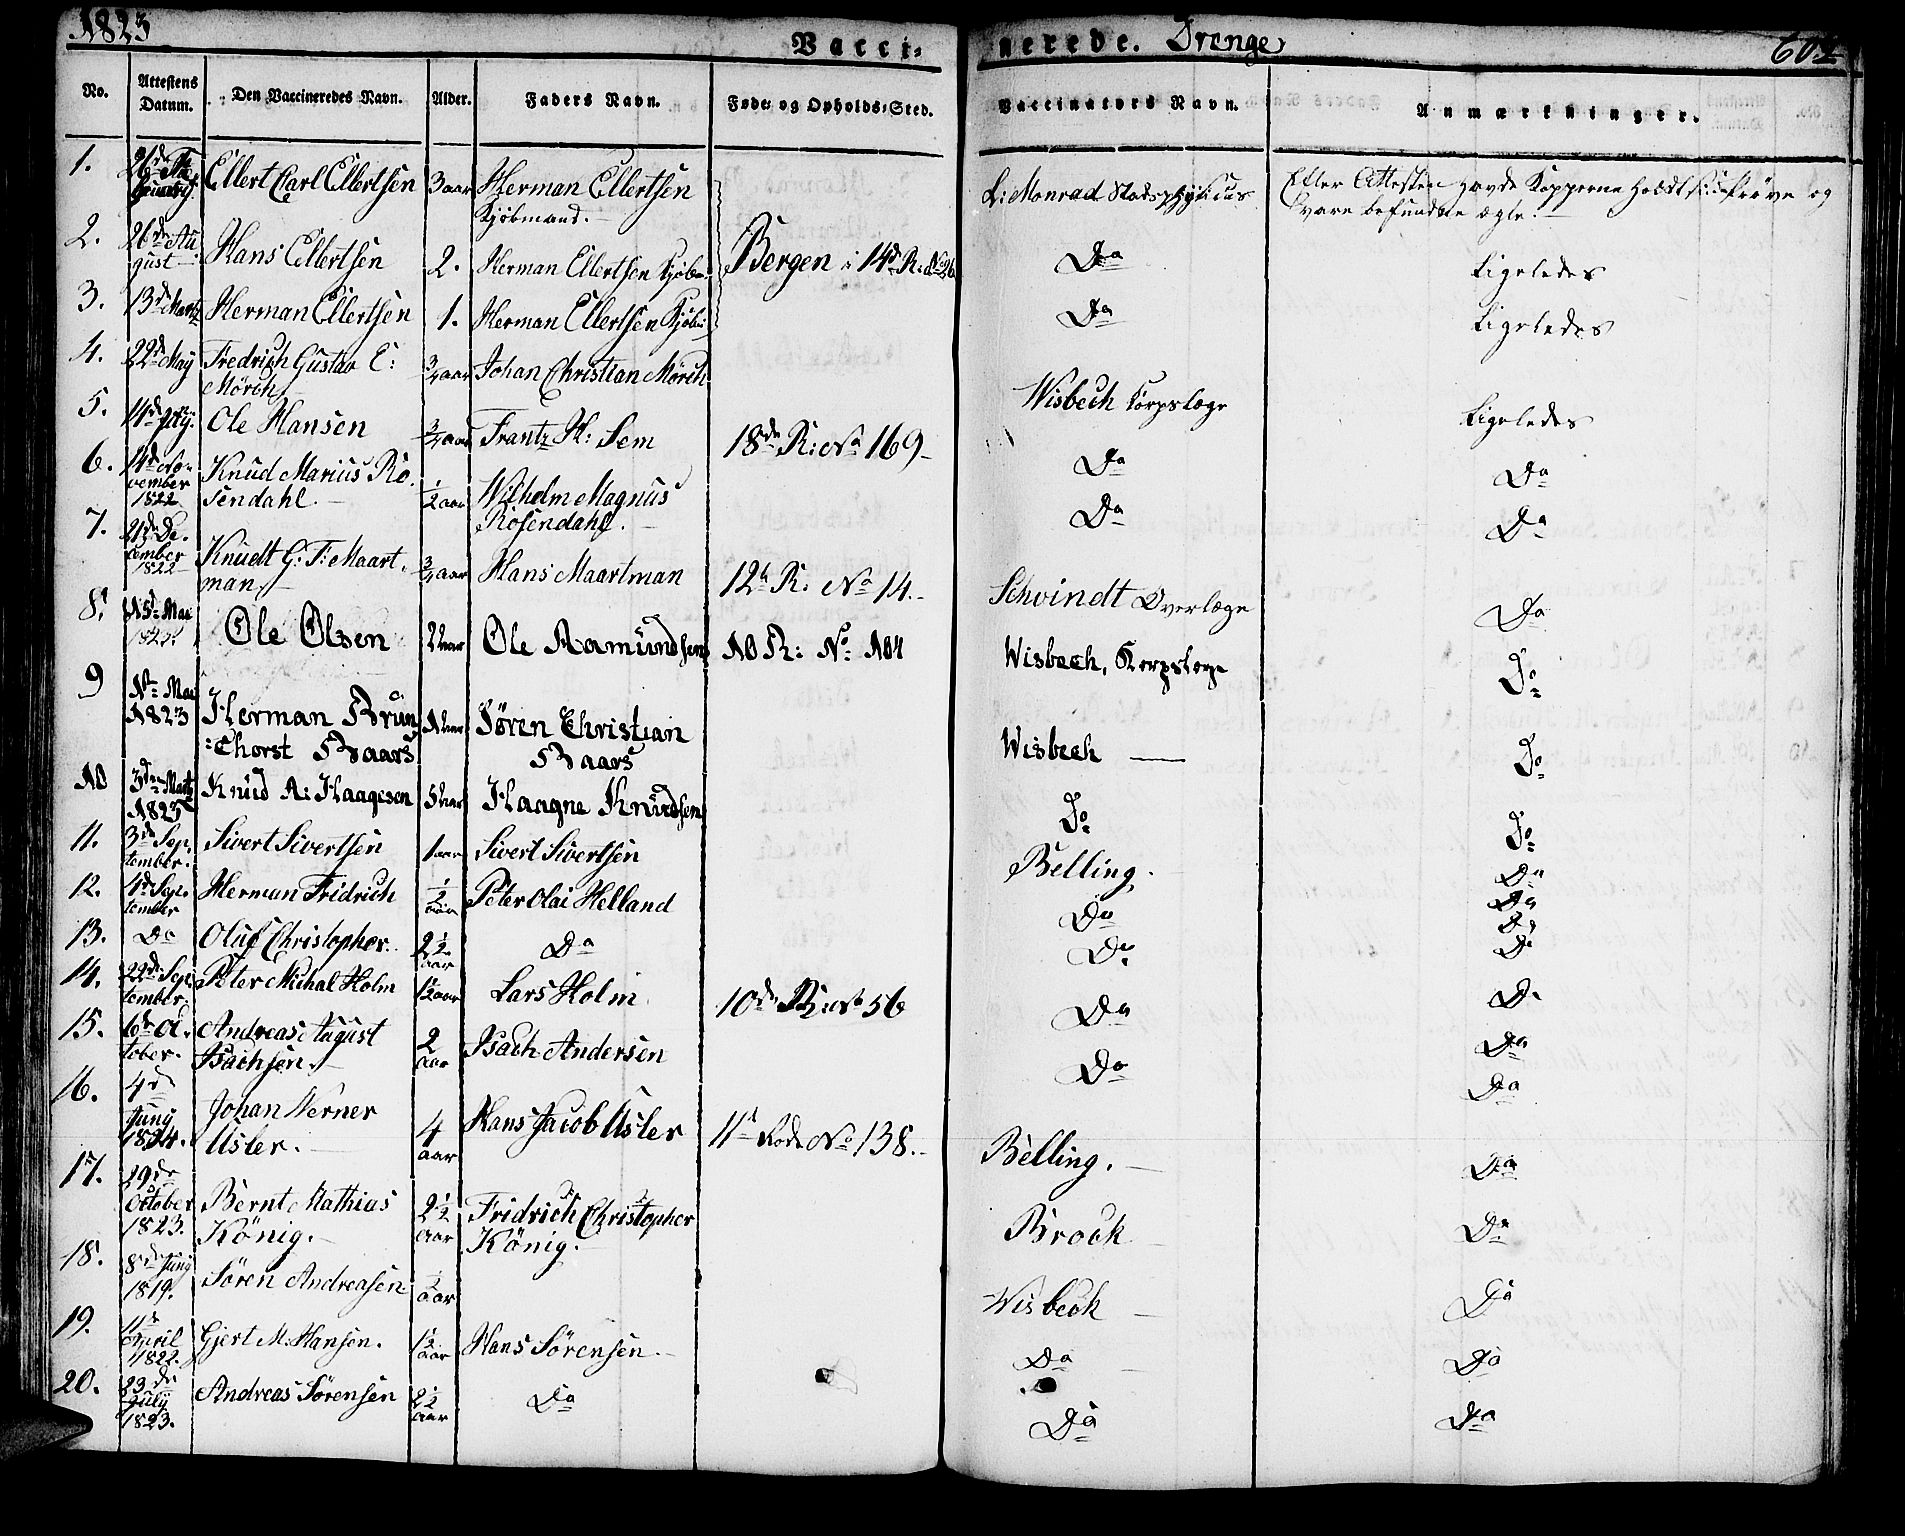 1823 Vacci- nerede. Drenge 602
No. Attestens Datum. Den Vaccineredes Navn. Alder. Faders Navn. Føde- og Opholds-Sted. Vaccinateurs Navn. Anmærkninger.
1. 26de Ellert Carl Ellertsen 3 aar Herman Ellertsen L: Monrad Stadsphysicus Efter Attesten havde Kopperne holdt sin Prøve og
Kjøbmand. vare befundne ægte.
2. 26de Au
gust Hans Ellertsen 2. Herman Ellertsen Kjøbm. Bergen i 14de R: Do Ligeledes
3. 13de Martz Herman Ellertsen 1. Herman Ellertsen Kjøbm Do Ligeledes
4. 22de May Fredrich Gustav C: 3/4 aar Johan Christian Mörch Wisbech Korpslæge Ligeledes
Mörch
5. 14de Ole Hansen 3/4 aar Frantz H: Sem 18de R: No 169 Do Do
6. 14de No-
vember
1822 Knud Marius Ro-
sendahl 1/2 aar Wilhelm Magnus
Rosendahl. Do Do
7. 21de De-
cember
1822 Knudt G: F: Maart-
man 3/4 aar Hans Maartman 12te R: No 14. Schvindt Overlæge Do
8. 15de Mai
Ole Olsen 2 aar Ole Aamundsen 10 R: No. 104 Wisbech, Korpslæge Do
9 Mai
1823 Herman Brun
Chorst Baars 1 aar Sören Christian
Baars Wisbech Do
10 3de Martz
1823 Knud A: Haagesen 5 aar Haagne Knudsen Do Do
11. 3de Sep-
tember. Sivert Sivertsen 1 aar Sivert Sivertsen Belling. Do
12. 4de Sep-
tember Herman Fridrich 1/2 aar Peter Olai Helland Do Do
13. Do Oluf Christopher 2 1/2 aar Do Do Do
14. 22de Sep-
tember. Peter Michal Holm 1 1/2 aar Lars Holm 10de R: No 56 Do Do
15. 6te Oc-
tober. Andreas August
Isachsen. 2 aar Isach Andersen Do Do
16. 4de
Juny
1824. Johan Werner
Usler. 4 aar Hans Jacob Usler 11te Rode No 138. Belling. Do
17. 29de
October
1823. Bernt Mathias
König. 2 1/2 aar Fridrich Christopher
König. Brock Do
18. 8de Juny
1819. Sören Andreasen 1/2 aar Wisbech Do
19. 11te
April
1822. Gjert M. Hansen. 1 1/2 aar Hans Sörensen. Do Do
20. 23de
July
1823. Andreas Sörensen 2 1/2 aar Do Do Do